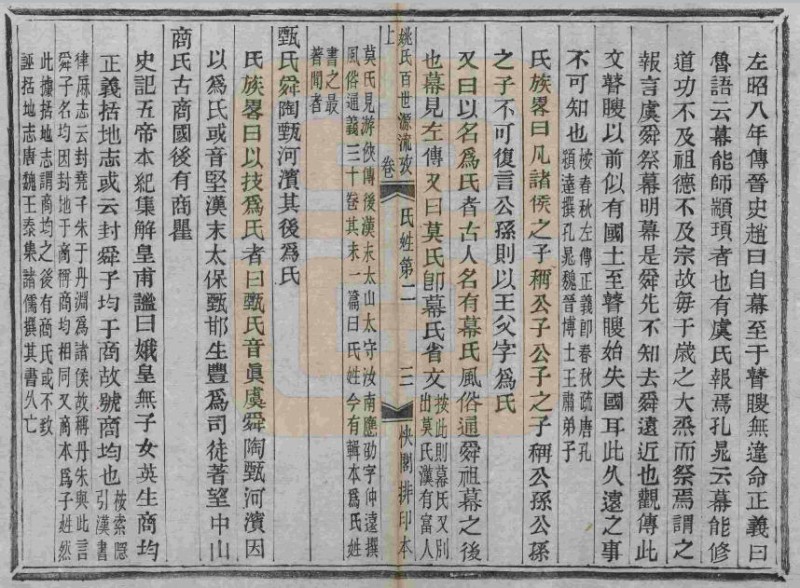 左昭八年傳晉史趙曰自幕至于瞽瞍無違命正義曰
魯語云幕能師顓頊者也有虞氏報焉孔晁云幕能修
道功不及祖德不及宗故每于歲之大烝而祭焉謂之
報言虞舜祭幕明幕是舜先不知去舜遠近也觀傳此
文瞽瞍以前似有國土至瞽瞍始失國耳此久遠之事
不可知也桉春秋左傳正義卽春秋疏唐孔
穎達撰孔晁魏晉博士王肅弟子
氏族畧曰凡諸侯之子稱公子公子之子稱公孫公孫
之子不可復言公孫則以王父字爲氏
又曰以名爲氏者古人名有幕氏風俗通舜祖幕之後
也幕見左傳又曰莫氏卽幕氏省文按此則幕氏又別
出莫氏漢有富人
姚氏百世源流攷 卷上 氏姓第二 三 快閣排印本
莫氏見游俠傳後漢末太山太守汝南應劭字仲遠撰
風俗通義三十卷其末一篇曰氏姓今有輯本爲氏姓
書之最
著聞者
甄氏舜陶甄河濱其後爲氏
氏族畧曰以技爲氏者曰甄氏音眞虞舜陶甄河濱因
以爲氏或音堅漢末太保甄邯生豐爲司徒著望中山
商氏古商國後有商瞿
史記五帝本紀集解皇甫謐曰娥皇無子女英生商均
正義括地志或云封舜子均于商故號商均也桉索隱
引漢書
律厤志云封堯子朱于丹淵爲諸侯故稱丹朱與此言
舜子名均因封地于商稱商均相同又商本爲子姓然
此據括地志謂商均之後有商氏或不致
誣括地志唐魏王泰集諸儒撰其書久亡